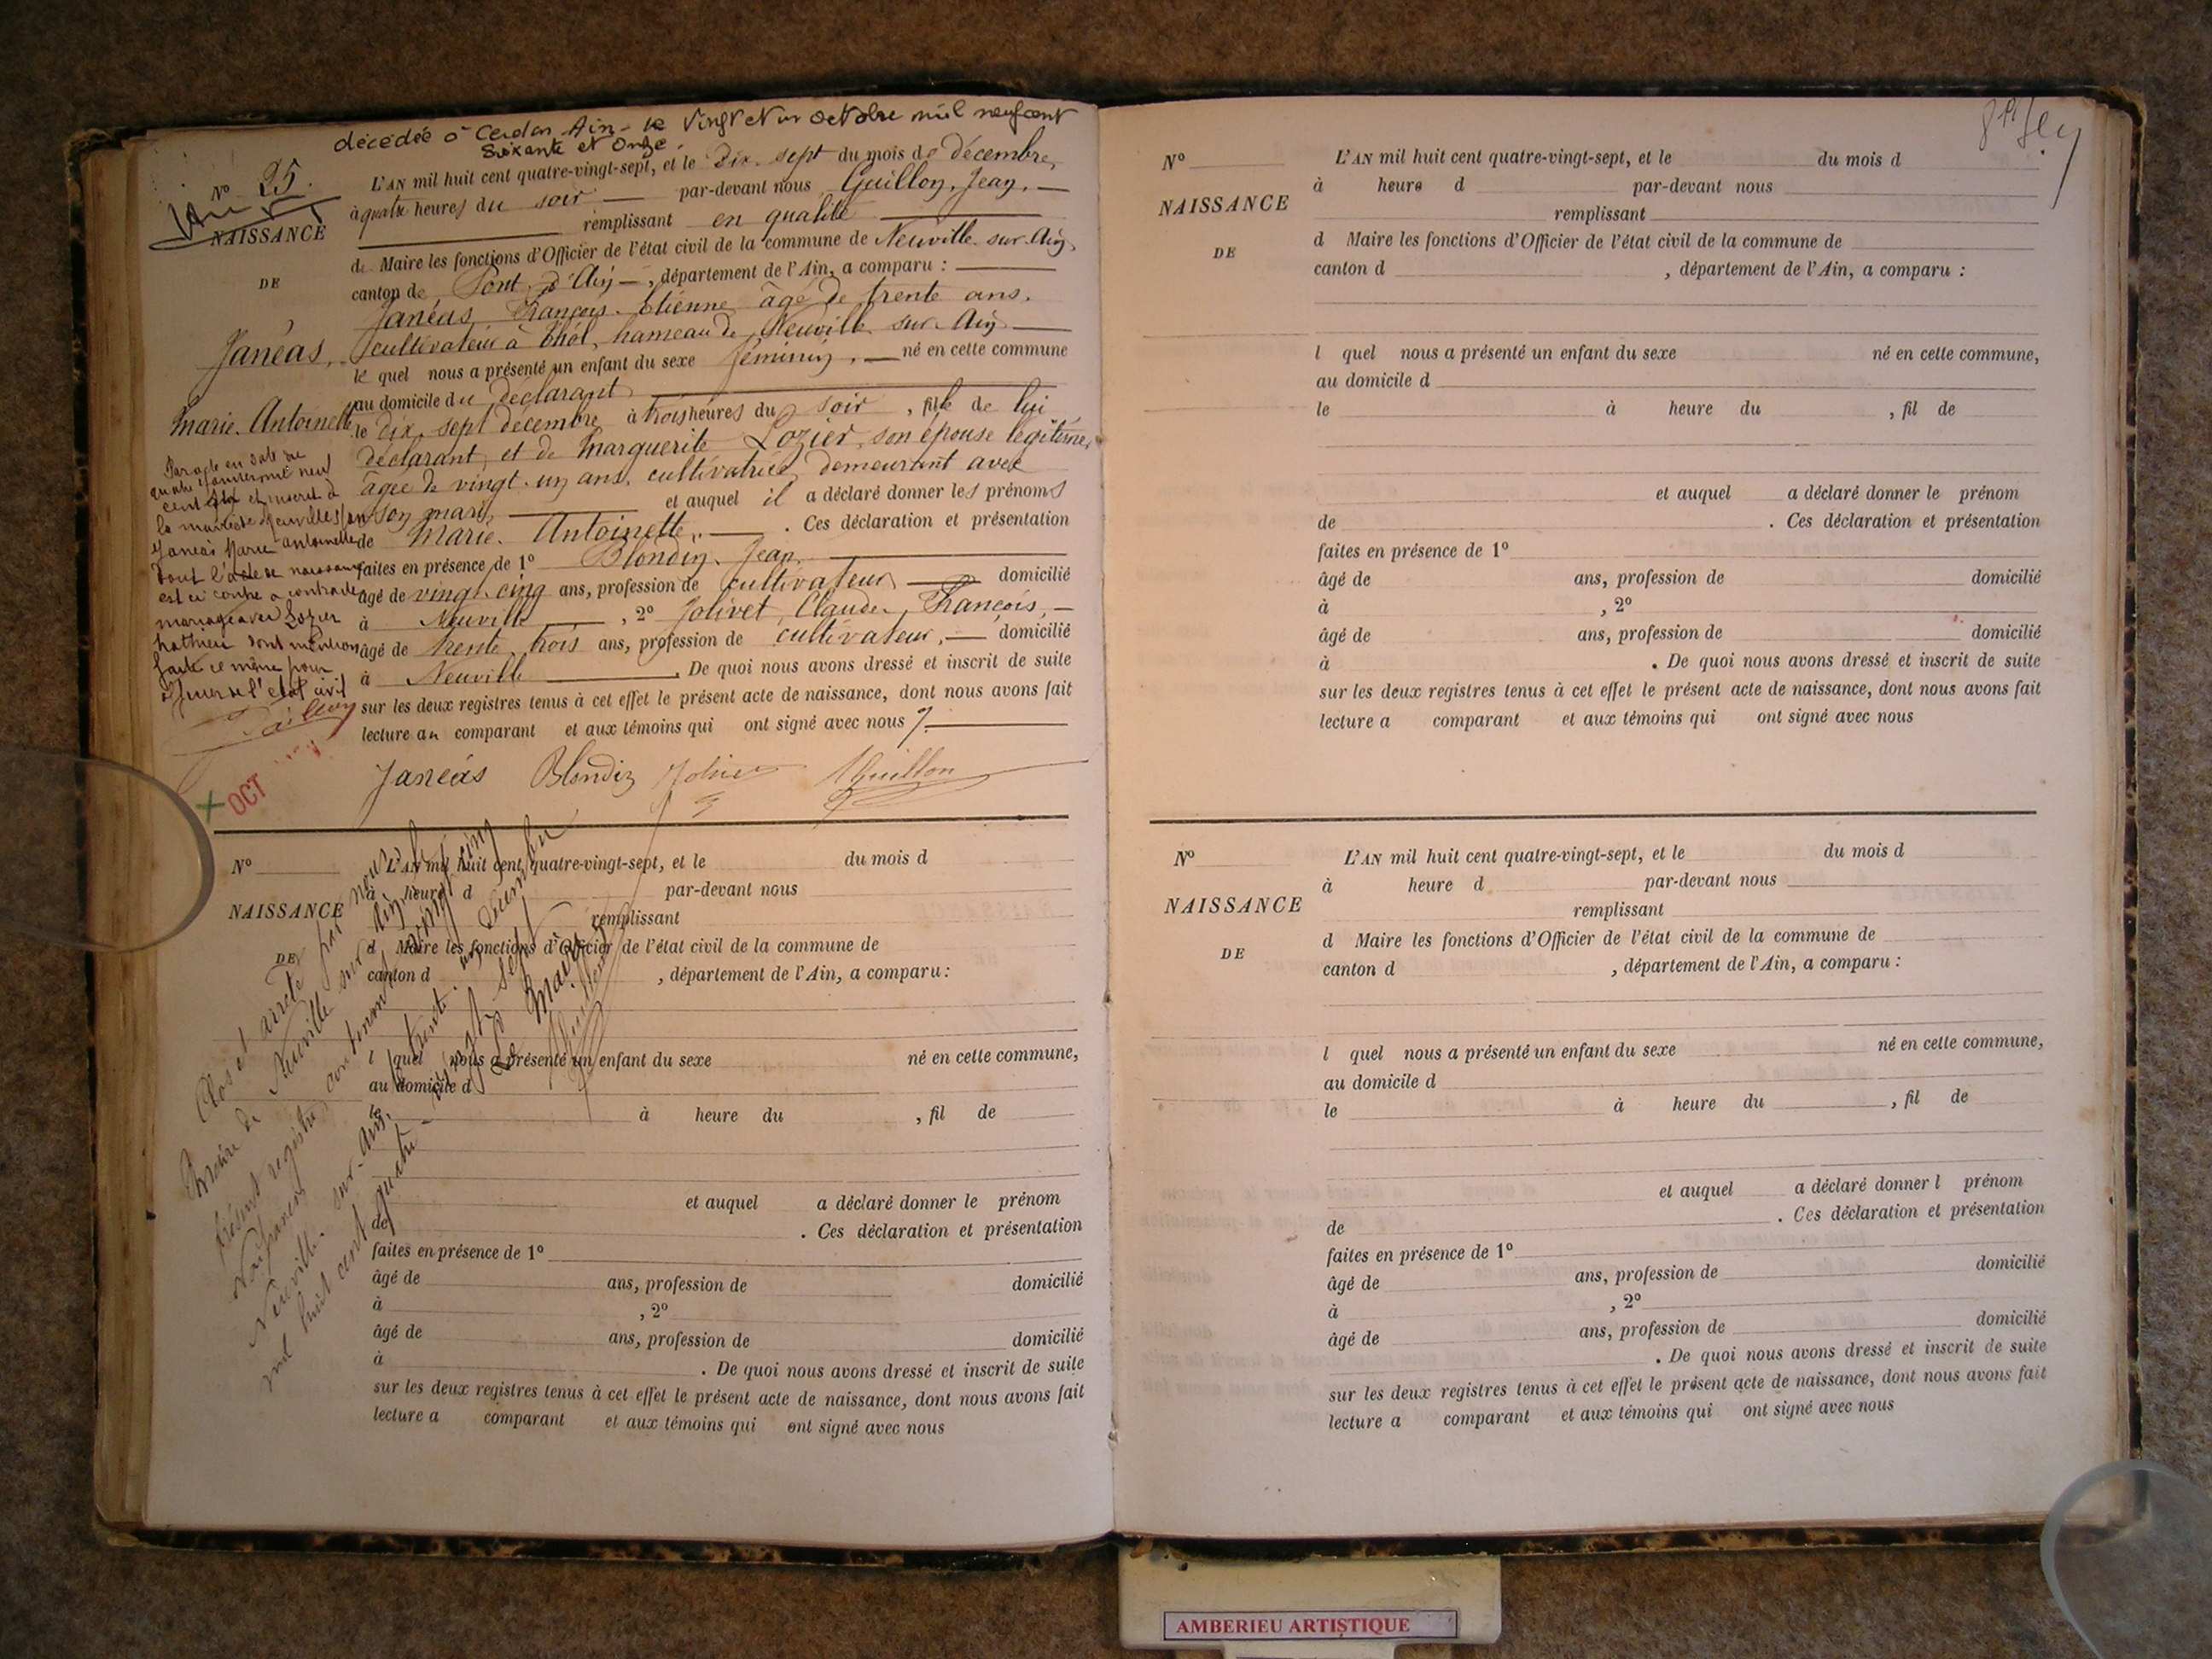 décédée à Cerdon Ain - le Vingt et un octobre mil neuf cent
Soixante et Onze.
N° 25.
NAISSANCE
DE
Janéas,
Marie. Antoinette
L'AN mil huit cent quatre-vingt-sept, et le dix. sept du mois de décembre,
à quatre heures du soir par-devant nous Guillon, Jean,
remplissant en qualité
de Maire les fonctions d'Officier de l'état civil de la commune de Neuville. sur. Ain,
canton de Pont. d'Ain, département de l'Ain, a comparu :
Janéas, François. Etienne âgé de trente ans.
cultivateur à Thol, hameau de Neuville. sur. Ain
le quel nous a présenté un enfant du sexe féminin, né en cette commune
au domicile du déclarant
le dix. sept décembre à trois heures du soir, fille de lui
déclarant, et de Marguerite Lozier, son épouse légitime,
âgée de vingt. un ans, cultivatrice, demeurant avec
son mari, et auquel il a déclaré donner les prénoms
de Marie. Antoinette. Ces déclaration et présentation
faites en présence de 1° Blondin. Jean,
âgé de vingt. cinq ans, profession de cultivateur domicilié
à Neuville, 2° Jolivet, Claude, François,
âgé de trente. trois ans, profession de cultivateur, domicilié
à Neuville. De quoi nous avons dressé et inscrit de suite
sur les deux registres tenus à cet effet le présent acte de naissance, dont nous avons fait
lecture au comparant et aux témoins qui ont signé avec nous
Janéas Blondin Jolivet Guillon
Par acte en date du
quatre janvier mil neuf
cent et inscrit à
la mairie de Neuville s/ Ain
Janéas Marie Antoinette
dont l'acte de naissance
est ci contre a contracté
mariage avec Lozier
Mathieu dont mention
faite ce même jour
l'état civil
OCT
N°
NAISSANCE
DE
L'AN mil huit cent quatre-vingt-sept, et le du mois d
à heure d par-devant nous
remplissant
d Maire les fonctions d'Officier de l'état civil de la commune de
canton d , département de l'Ain, a comparu :
l quel nous a présenté un enfant du sexe né en cette commune,
au domicile d
le à heure du , fil de
et auquel a déclaré donner le prénom
de . Ces déclaration et présentation
faites en présence de 1°
âgé de ans, profession de domicilié
à , 2°
âgé de ans, profession de domicilié
à . De quoi nous avons dressé et inscrit de suite
sur les deux registres tenus à cet effet le présent acte de naissance, dont nous avons fait
lecture a comparant et aux témoins qui ont signé avec nous
Clos et arrêté par nous
Maire de Neuville sur Ain le
présent registre contenant vingt cinq
Naissances
Neuville. sur. Ain, le trente. un Décembre
mil huit cent quatre-vingt. sept
Le Maire
Guillon
N°
NAISSANCE
DE
L'AN mil huit cent quatre-vingt-sept, et le du mois d
à heure d par-devant nous
remplissant
d Maire les fonctions d'Officier de l'état civil de la commune de
canton d , département de l'Ain, a comparu :
l quel nous a présenté un enfant du sexe né en cette commune,
au domicile d
le à heure du , fil de
et auquel a déclaré donner le prénom
de . Ces déclaration et présentation
faites en présence de 1°
âgé de ans, profession de domicilié
à , 2°
âgé de ans, profession de domicilié
à . De quoi nous avons dressé et inscrit de suite
sur les deux registres tenus à cet effet le présent acte de naissance, dont nous avons fait
lecture a comparant et aux témoins qui ont signé avec nous
N°
NAISSANCE
DE
L'AN mil huit cent quatre-vingt-sept, et le du mois d
à heure d par-devant nous
remplissant
d Maire les fonctions d'Officier de l'état civil de la commune de
canton d , département de l'Ain, a comparu :
l quel nous a présenté un enfant du sexe né en cette commune,
au domicile d
le à heure du , fil de
et auquel a déclaré donner l prénom
de . Ces déclaration et présentation
faites en présence de 1°
âgé de ans, profession de domicilié
à , 2°
âgé de ans, profession de domicilié
. De quoi nous avons dressé et inscrit de suite
sur les deux registres tenus à cet effet le présent acte de naissance, dont nous avons fait
lecture a comparant et aux témoins qui ont signé avec nous
AMBERIEU ARTISTIQUE